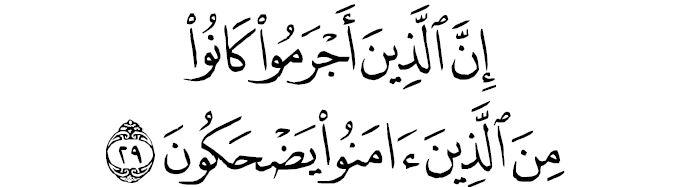 إِنَّ ٱلَّذِينَ أَجْرَمُوا۟ كَانُوا۟
مِنَ ٱلَّذِينَ ءَامَنُوا۟ يَضْحَكُونَ ٢٩